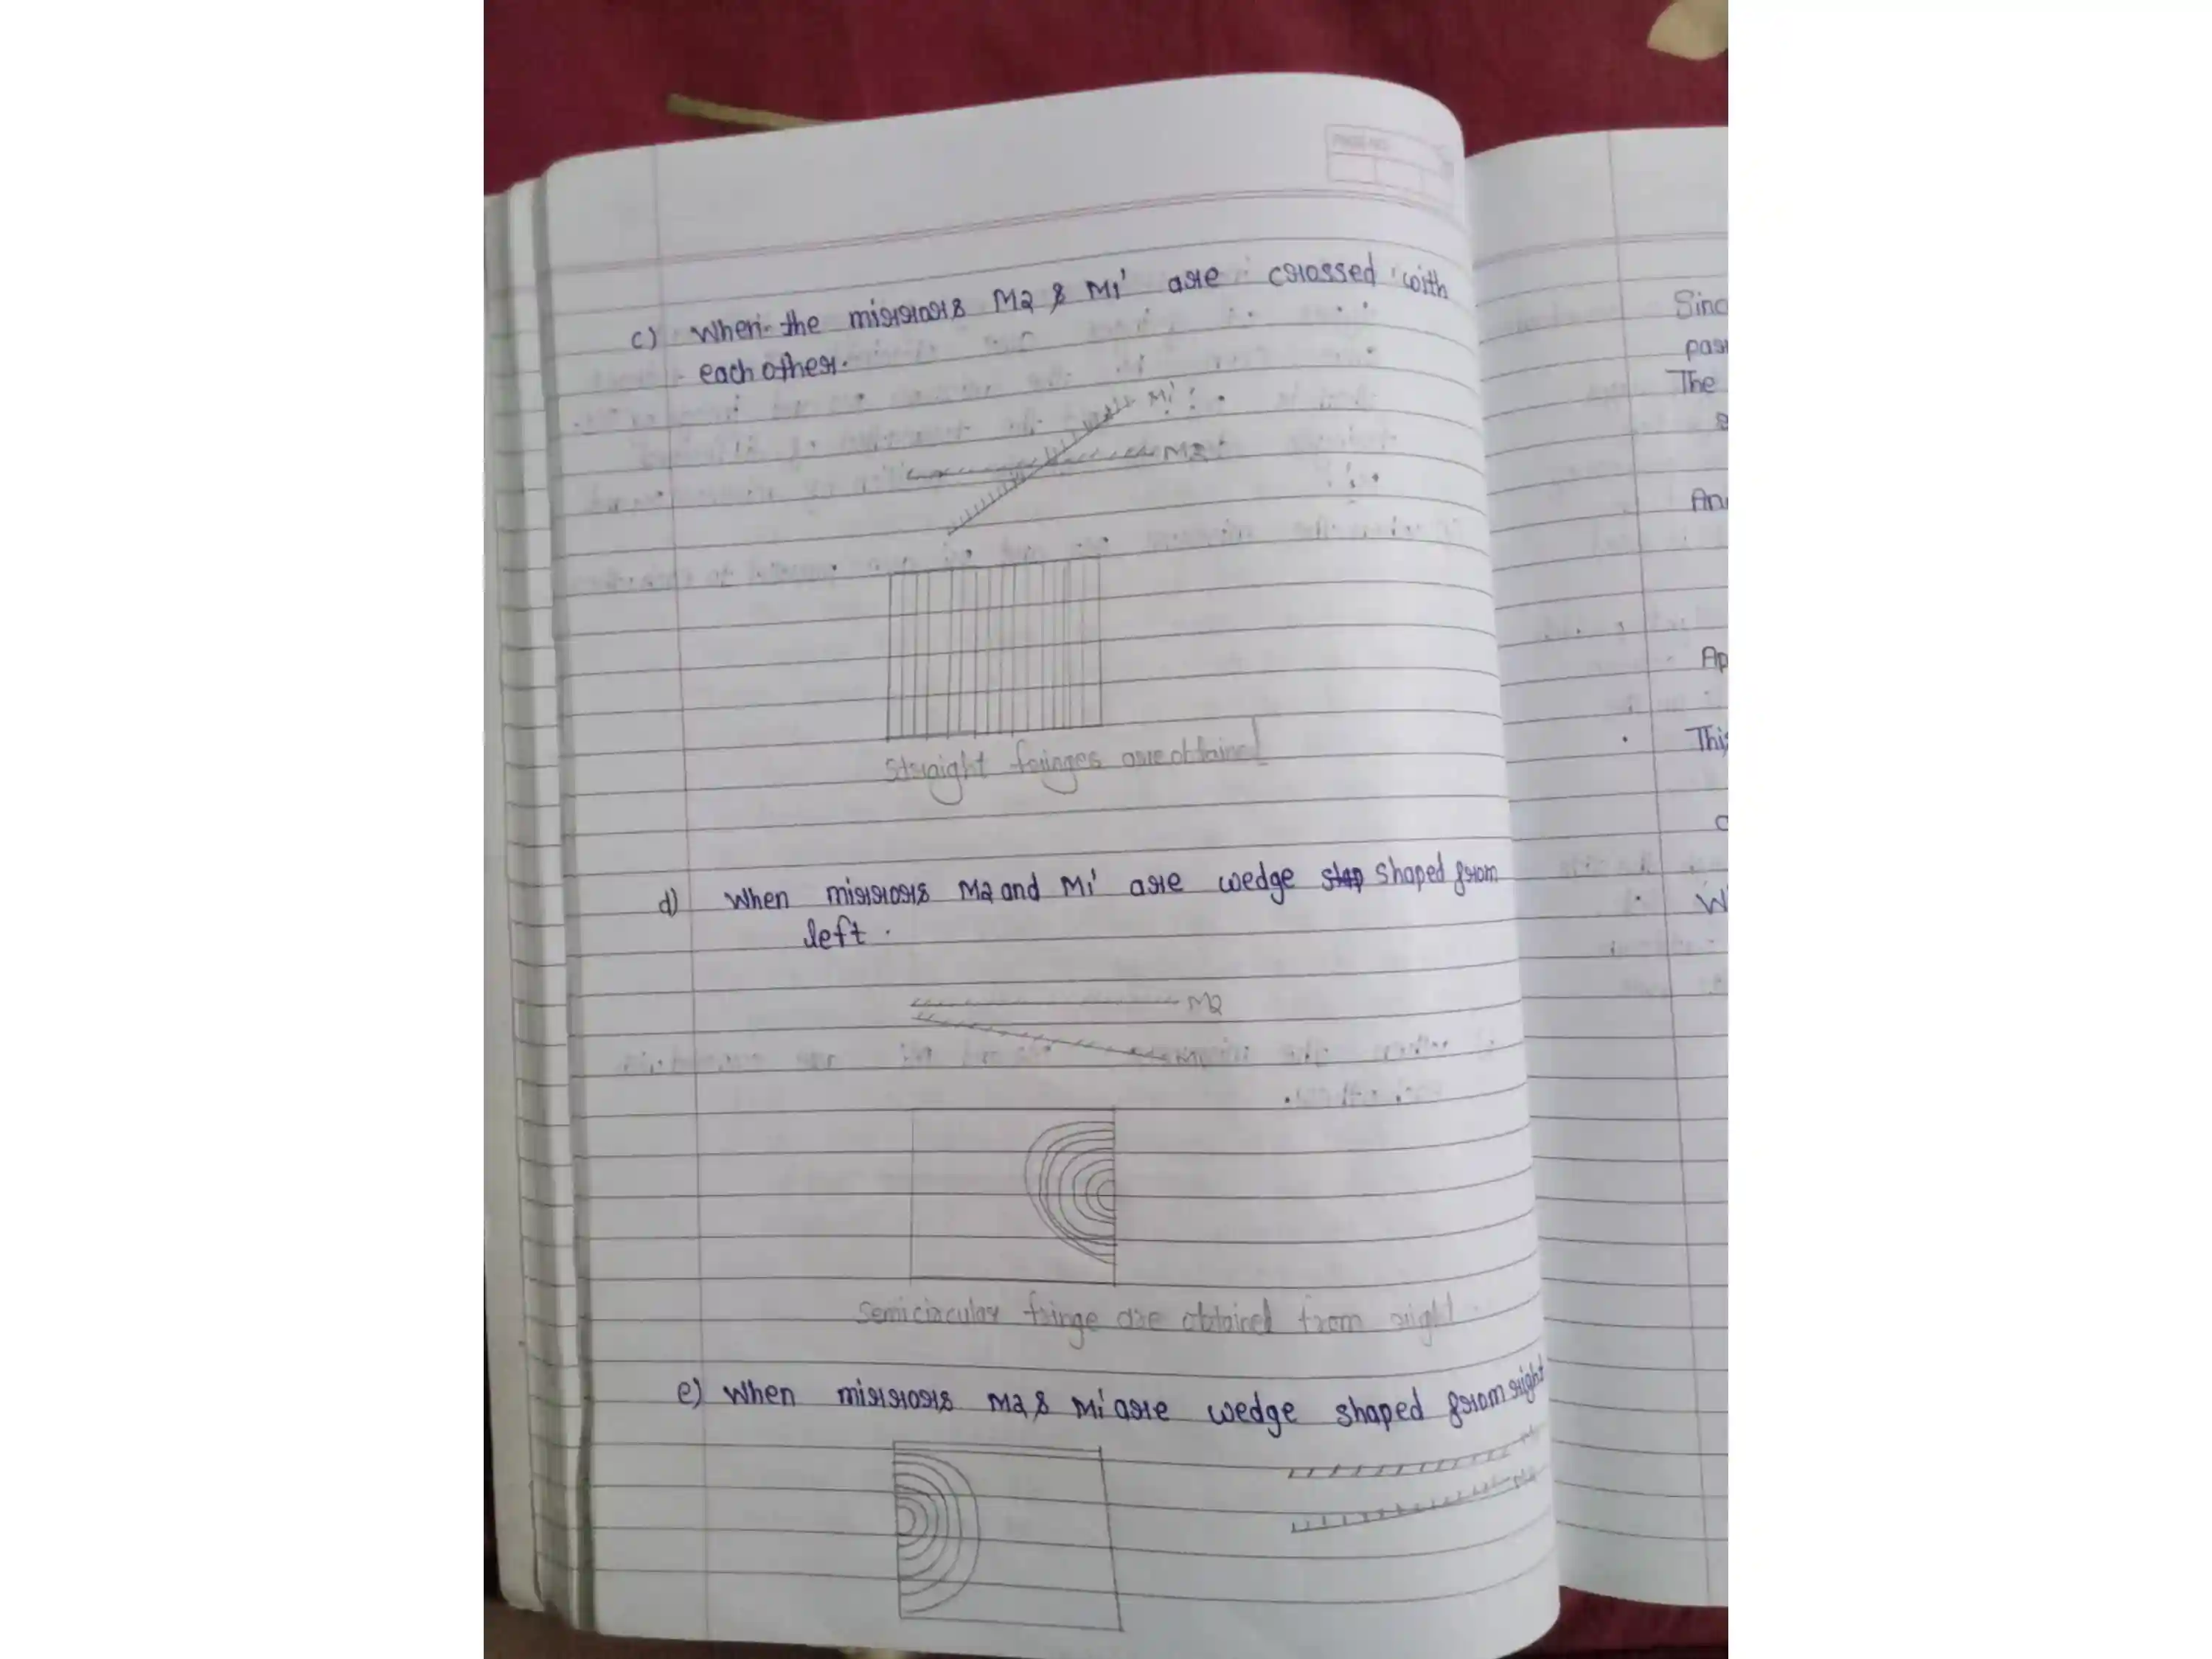 PAGE NO.
c) When the mirrors M2 & M1' are crossed with
each other.
M1'
M2
straight fringes are obtained
d) When mirrors M2 and M1' are wedge shaped from
left.
M2
semicircular fringe are obtained from right
e) When mirrors M2 & M1' are wedge shaped from right
Sinc
The
An
Ap
This
W